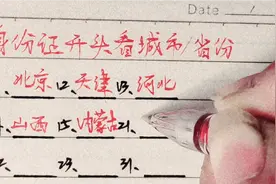 Date /
身份证开头看城市/省份
北京 12. 天津 13. 河北
山西 15. 内蒙古 21.
23. 31.